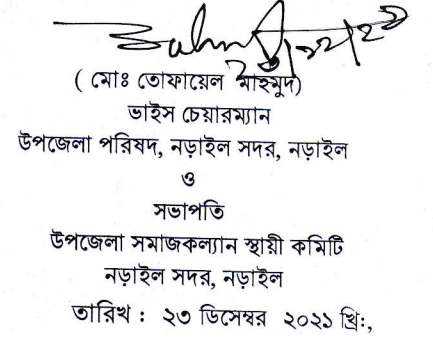 ( মোঃ তোফায়েল মাহমুদ)
ভাইস চেয়ারম্যান
উপজেলা পরিষদ, নড়াইল সদর, নড়াইল
ও
সভাপতি
উপজেলা সমাজকল্যান স্থায়ী কমিটি
নড়াইল সদর, নড়াইল
তারিখ : ২৩ ডিসেম্বর ২০২১ খ্রি:,